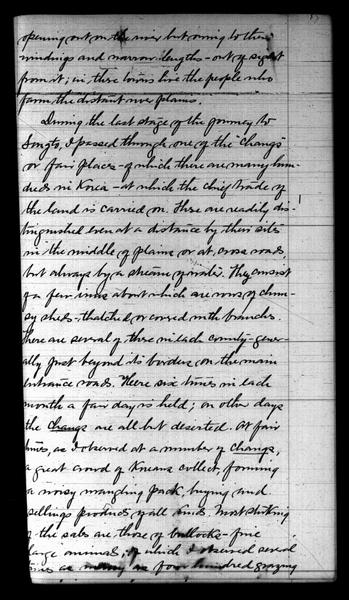 opening out on the river but owing to their
windings and narrow lengths - out of sight
from it; in these towns live the people who
farm the distant river plains.
During the last stage of the journey to
Songto, I passed through one of the "Changs"
or fair places - of which there are many hun-
dreds in Korea - at which the chief trade of
the land is carried on. These are readily dis-
tinguished even at a distance by their sites
in the middle of plains or at cross roads
but always by a stream of water. They consist
of a few inns about which are rows of clum-
sy sheds - thatched or covered with branches.
There are several of these in each county - gener-
ally just beyond its borders on the main
entrance roads. Here six times in each
month a fair day is held; on other days
the Changs are all but deserted. At fair
times, as I observed at a number of Changs,
a great crowd of Koreans collect, forming
a noisy wrangling pack, buying and
selling products of all kinds. Most striking
of the sales are those of bullocks - fine
large animals, of which I observed several
times as many as four hundred grazing